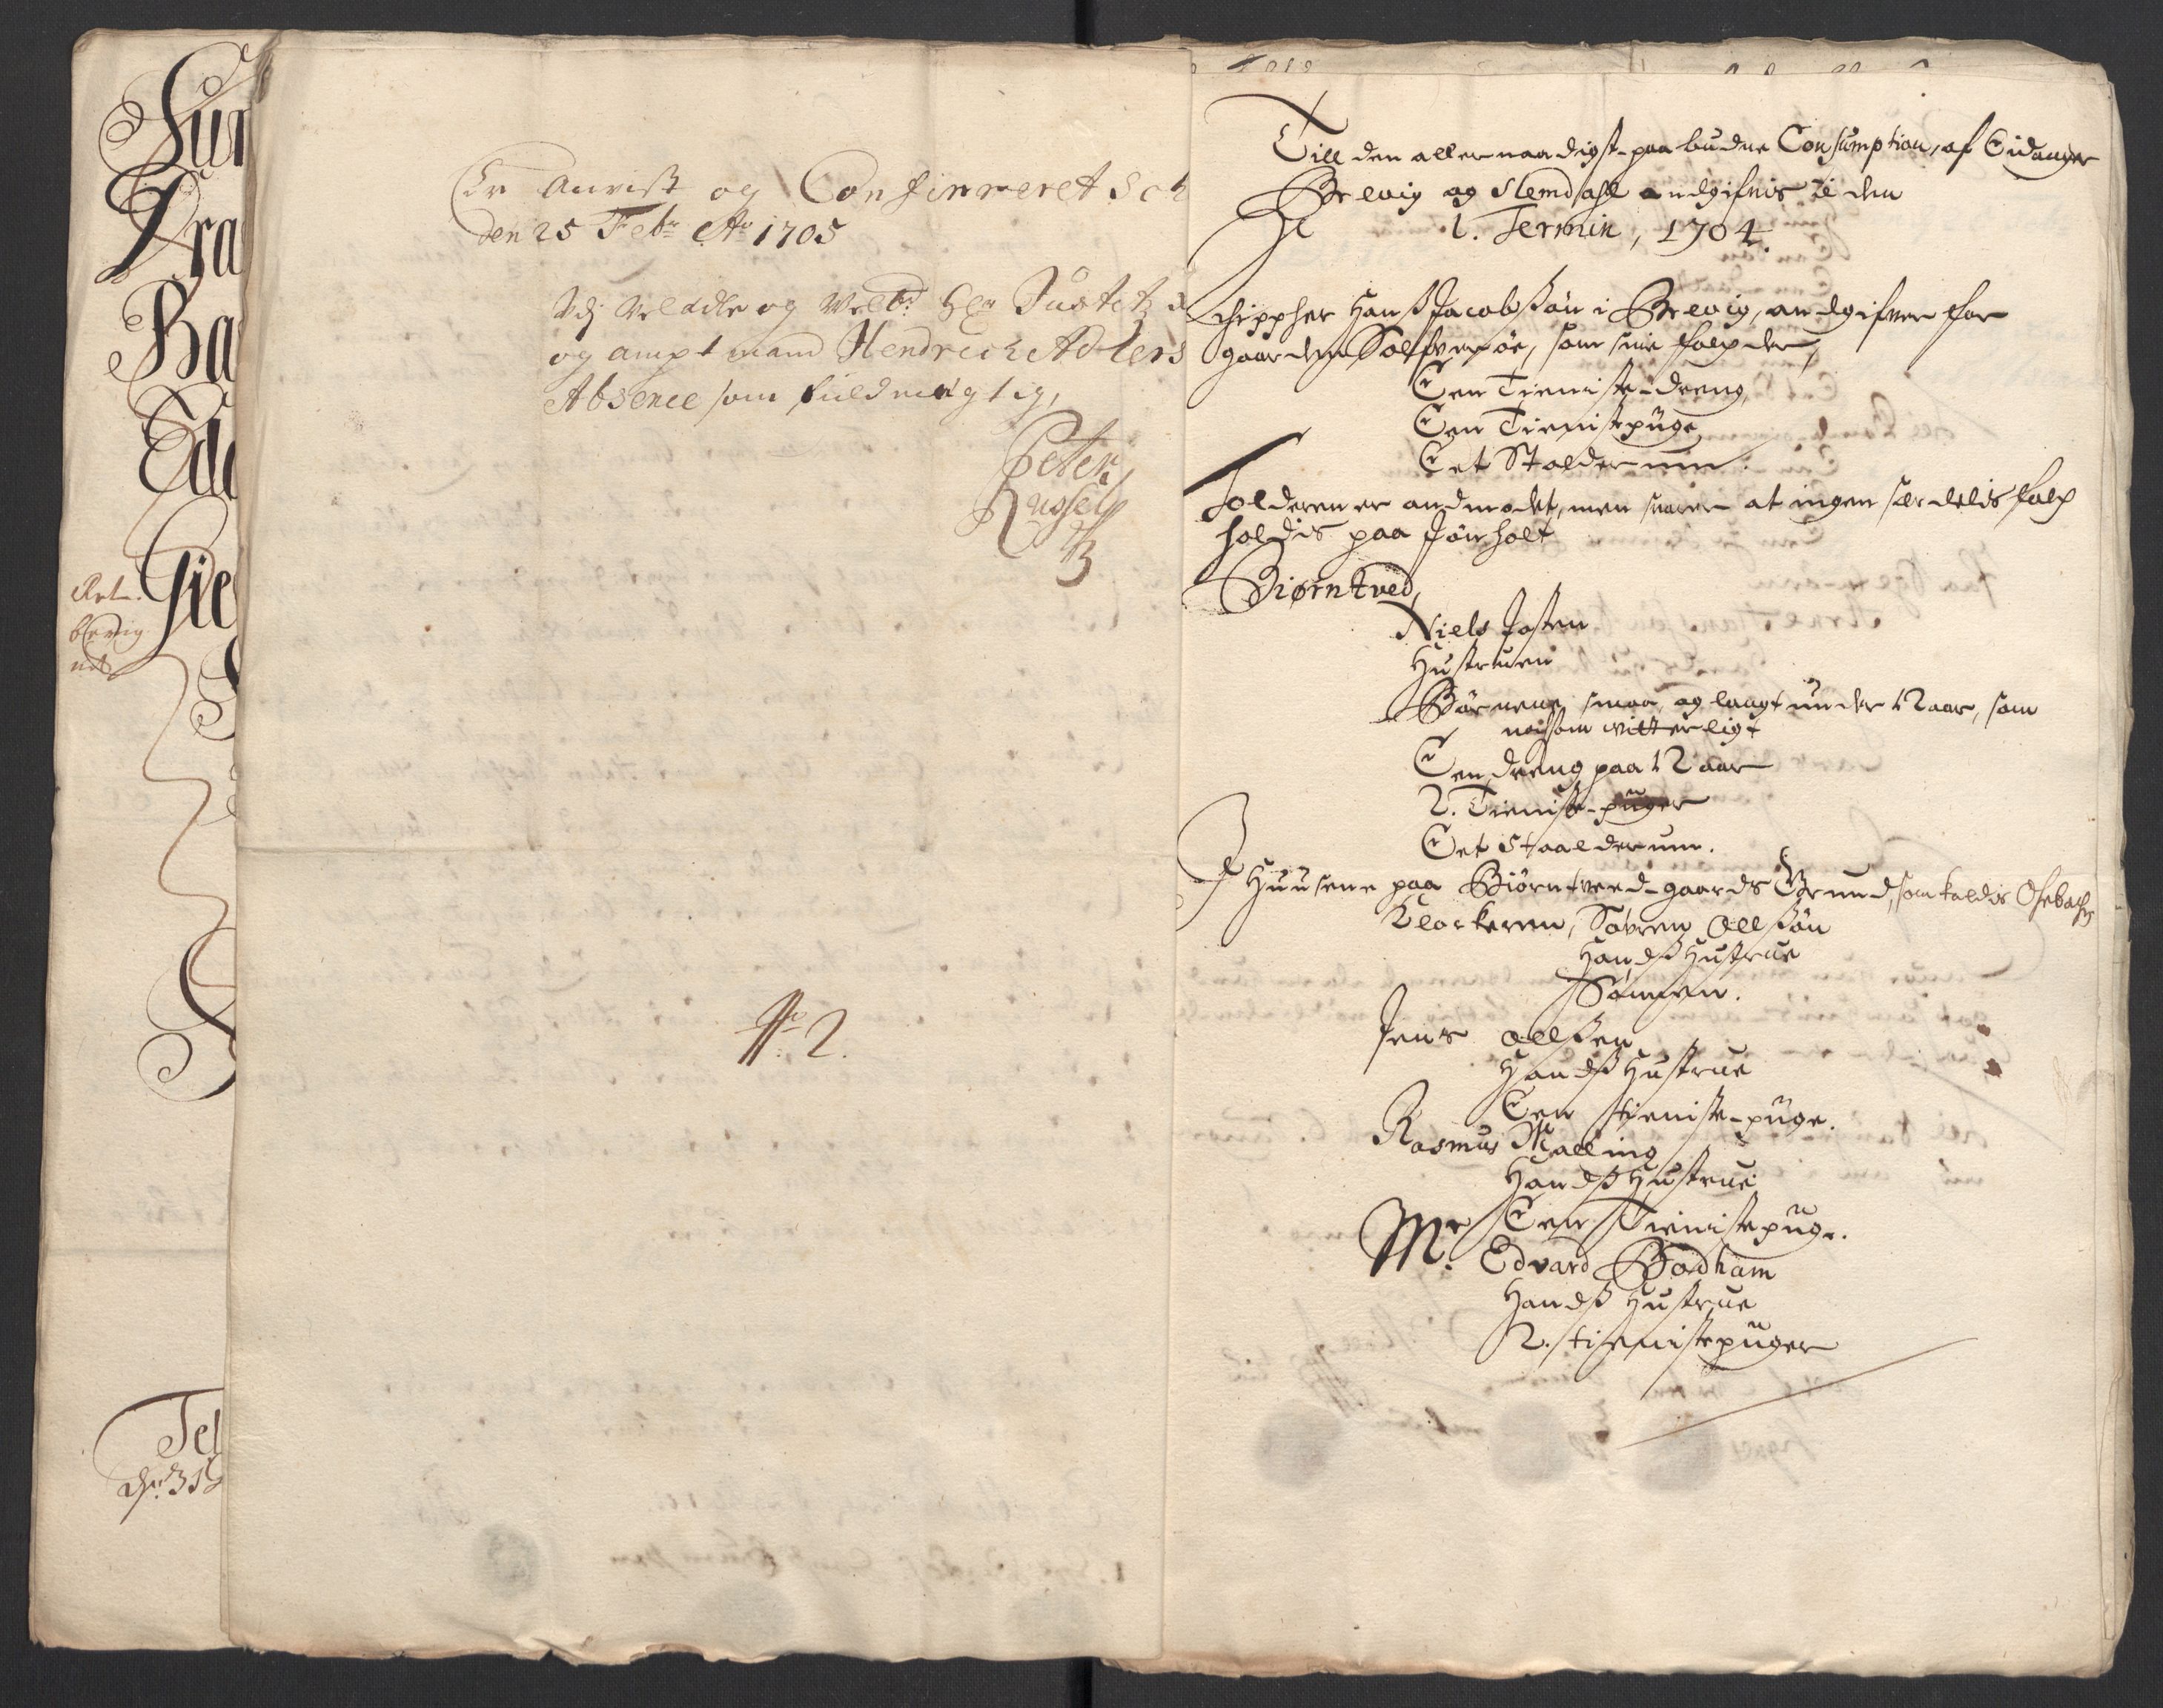 Sur
Dra
Ba
Ede
Gie
Er Anvist og Confirmeret Sch
den 25 Febr Ao 1705
Udj Veladle og Velb: Her Justetz
og amptmand Hendrich Adlers
Absence som fuldmegtig,
Peter
Russel
No 2.
Till den allernaadigst-paabudne Consumption, af Eidanger
Brevig og Slemdahl andgifvis i den
1. Termin, 1704.
Schippher Hanß Jacobsøn i Brevig, andgifver for
gaarden som sine folch der,
Een Tieniste-dreng,
Een Tienistepüge
Eet Stolderum.
Tolderen er andmodet, men svarer at ingen særdelis folch
holdis paa Jønholt
Biørntved,
Niels Josten
Hustruen
Børnene smaa og langt under 12 aar, som
noksom vitterligt
Een dreng paa 12 aar
2. Tieniste-püger
Eet Staalderum.
I Huusene paa Biørntved-gaards Grund, som kaldis Osebach
Klockeren, Søvren Ollsøn
Handß Hustrue
Sønnen.
Jens Ollsen
Handß Hustrue
Een tieniste-püge.
Rasmus Malling
Handß Hustrue
Een Tienistepüge.
Mr. Edvard Bodham
Handß Hustrue
2. tienistepüger